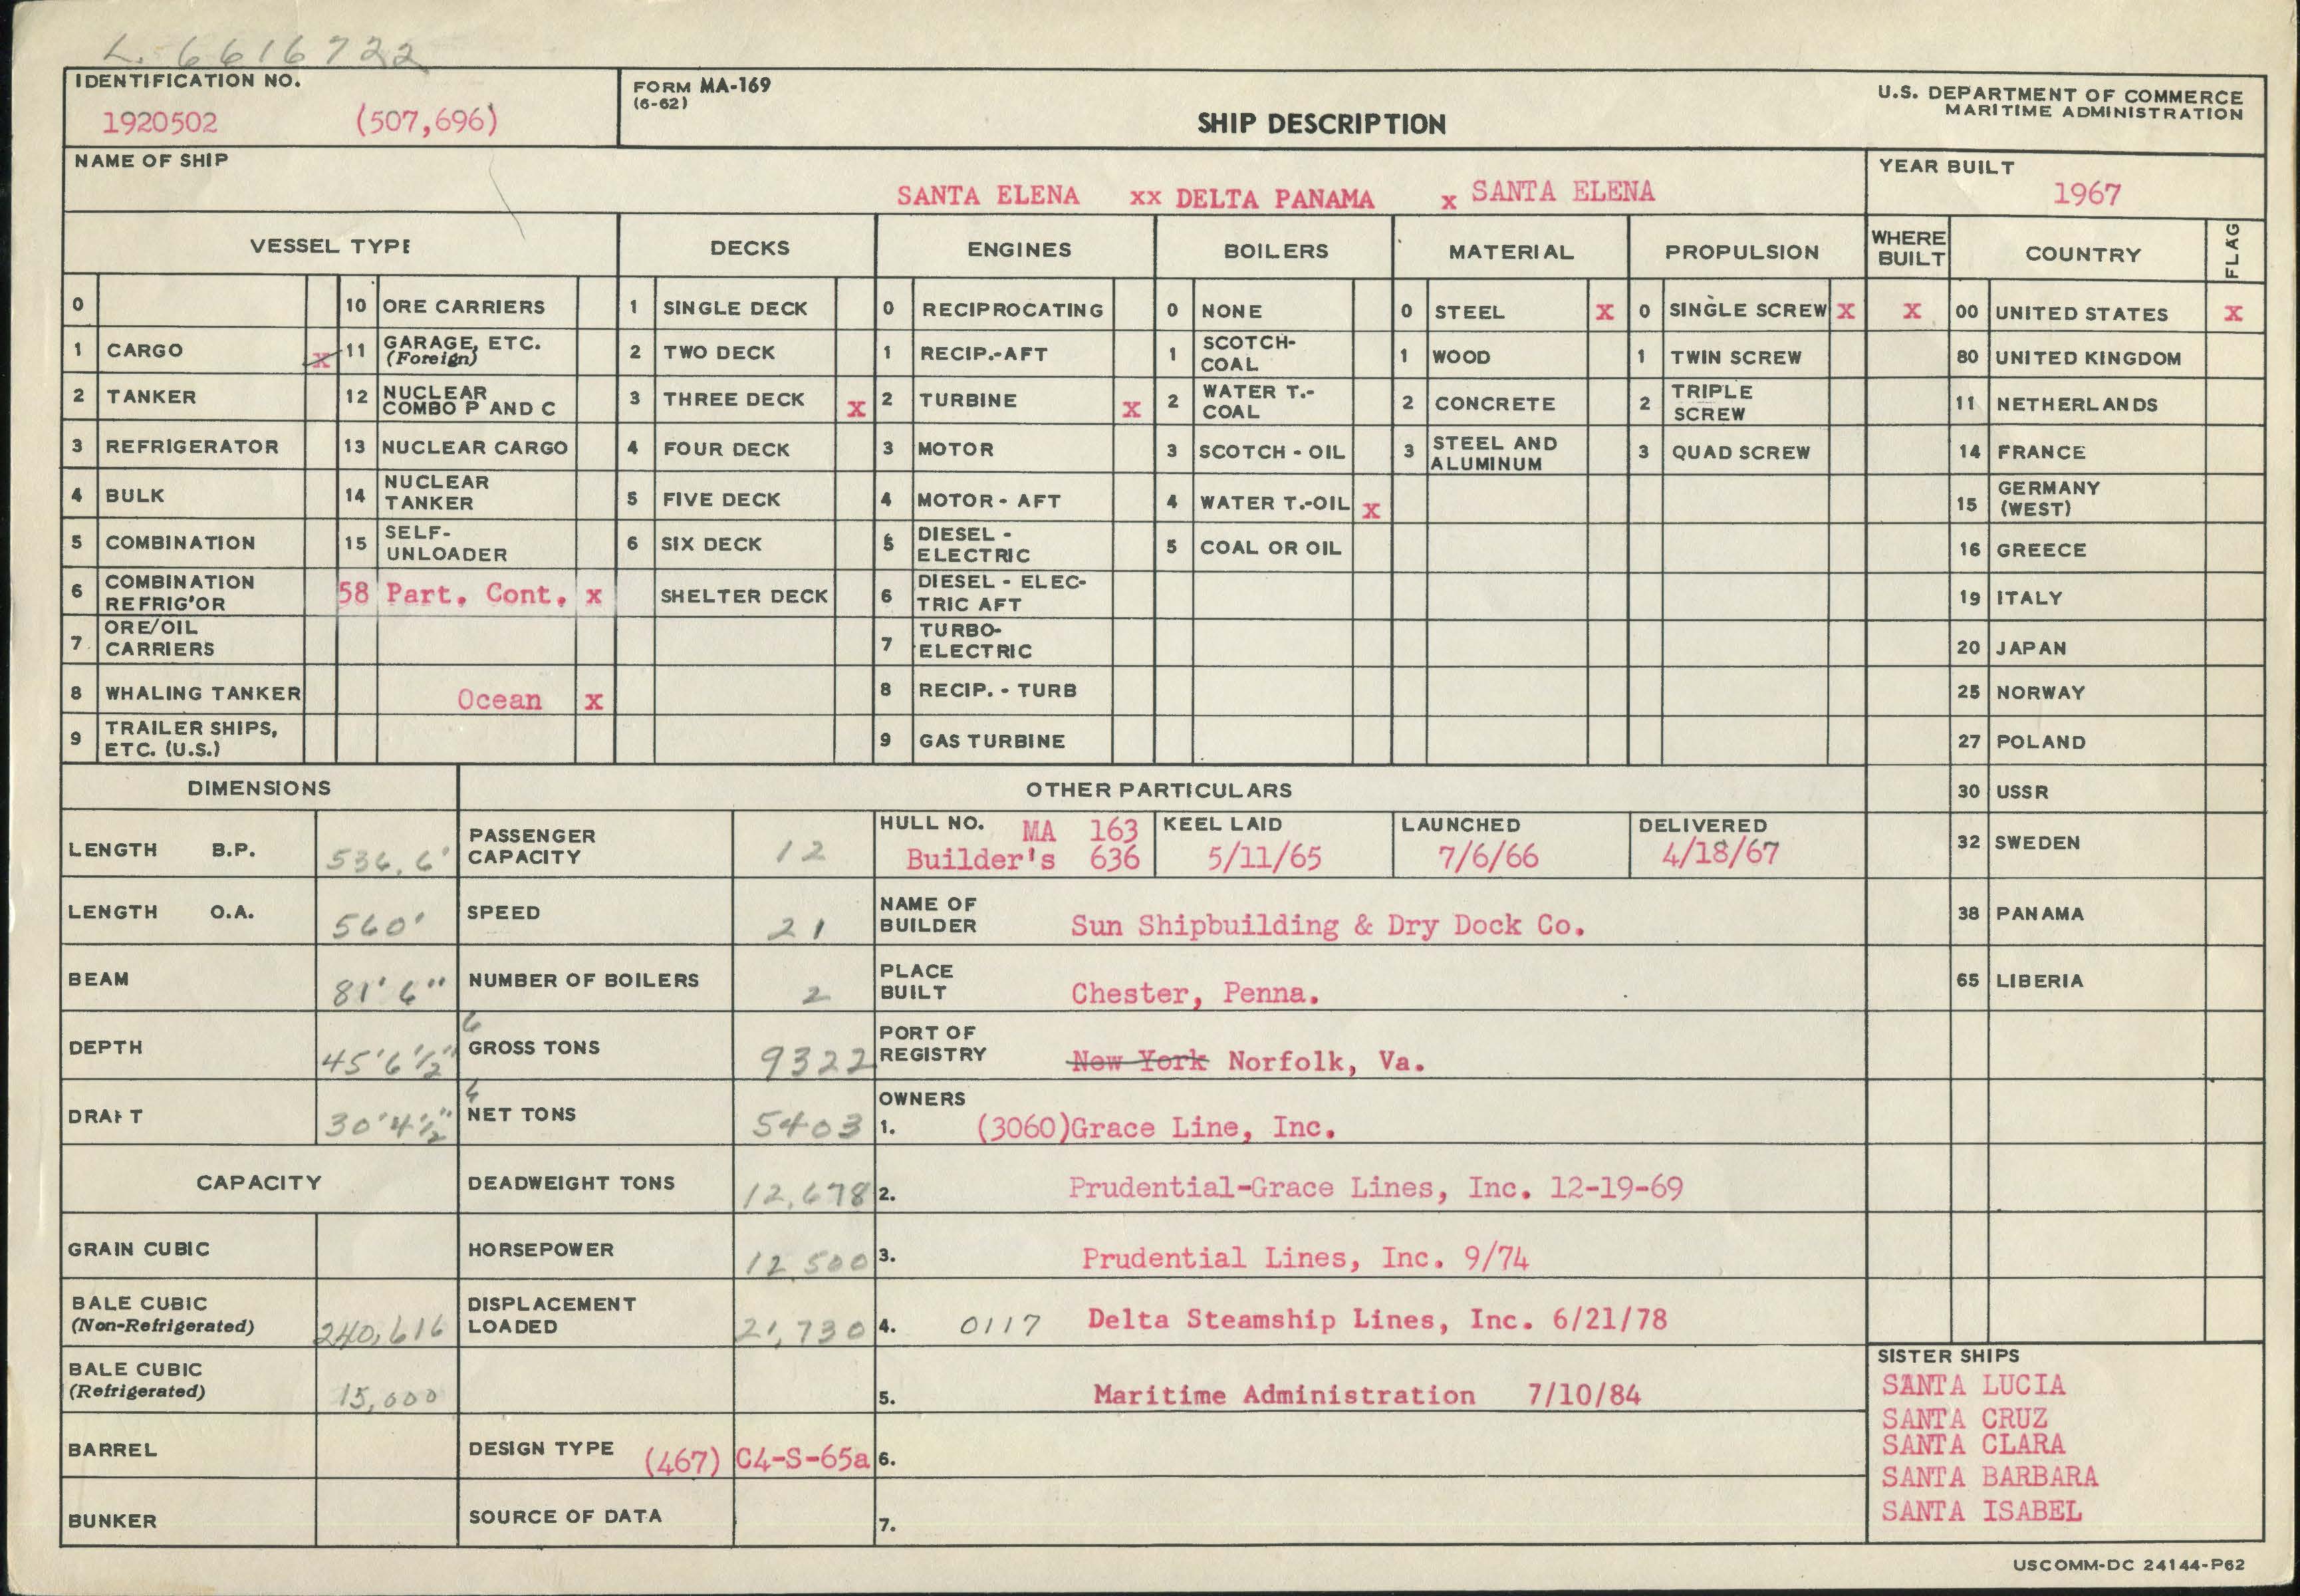 L. 6616722
IDENTIFICATION NO.
1920502 (507,696)
FORM MA-169
(6-62)
SHIP DESCRIPTION
U.S. DEPARTMENT OF COMMERCE
MARITIME ADMINISTRATION
NAME OF SHIP
SANTA ELENA xx DELTA PANAMA x SANTA ELENA
YEAR BUILT
1967
VESSEL TYPE DECKS ENGINES BOILERS MATERIAL PROPULSION WHERE BUILT COUNTRY FLAG
0 10 ORE CARRIERS 1 SINGLE DECK 0 RECIPROCATING 0 NONE 0 STEEL X 0 SINGLE SCREW X X 00 UNITED STATES X
1 CARGO x 11 GARAGE, ETC. (Foreign) 2 TWO DECK 1 RECIP.-AFT 1 SCOTCH-COAL 1 WOOD 1 TWIN SCREW 80 UNITED KINGDOM
2 TANKER 12 NUCLEAR COMBO P AND C 3 THREE DECK x 2 TURBINE x 2 WATER T.-COAL 2 CONCRETE 2 TRIPLE SCREW 11 NETHERLANDS
3 REFRIGERATOR 13 NUCLEAR CARGO 4 FOUR DECK 3 MOTOR 3 SCOTCH - OIL 3 STEEL AND ALUMINUM 3 QUAD SCREW 14 FRANCE
4 BULK 14 NUCLEAR TANKER 5 FIVE DECK 4 MOTOR - AFT 4 WATER T.-OIL x 15 GERMANY (WEST)
5 COMBINATION 15 SELF-UNLOADER 6 SIX DECK 5 DIESEL - ELECTRIC 5 COAL OR OIL 16 GREECE
6 COMBINATION REFRIG'OR 58 Part. Cont. x SHELTER DECK 6 DIESEL - ELECTRIC AFT 19 ITALY
7 ORE/OIL CARRIERS 7 TURBO-ELECTRIC 20 JAPAN
8 WHALING TANKER Ocean x 8 RECIP. - TURB 25 NORWAY
9 TRAILER SHIPS, ETC. (U.S.) 9 GAS TURBINE 27 POLAND
30 USSR
32 SWEDEN
38 PANAMA
65 LIBERIA
DIMENSIONS
LENGTH B.P. 536.6'
LENGTH O.A. 560'
BEAM 81'6"
DEPTH 45'6½"
DRAFT 30'4½"
CAPACITY
GRAIN CUBIC
BALE CUBIC (Non-Refrigerated) 240,616
BALE CUBIC (Refrigerated) 15,000
BARREL
BUNKER
OTHER PARTICULARS
PASSENGER CAPACITY 12
SPEED 21
NUMBER OF BOILERS 2
6
GROSS TONS 9322
6
NET TONS 5403
DEADWEIGHT TONS 12,678
HORSEPOWER 12,500
DISPLACEMENT LOADED 21,730
DESIGN TYPE (467) C4-S-65a
SOURCE OF DATA
HULL NO. MA 163
Builder's 636
KEEL LAID
5/11/65
LAUNCHED
7/6/66
DELIVERED
4/18/67
NAME OF BUILDER Sun Shipbuilding & Dry Dock Co.
PLACE BUILT Chester, Penna.
PORT OF REGISTRY New York Norfolk, Va.
OWNERS
1. (3060)Grace Line, Inc.
2. Prudential-Grace Lines, Inc. 12-19-69
3. Prudential Lines, Inc. 9/74
4. 0117 Delta Steamship Lines, Inc. 6/21/78
5. Maritime Administration 7/10/84
6.
7.
SISTER SHIPS
SANTA LUCIA
SANTA CRUZ
SANTA CLARA
SANTA BARBARA
SANTA ISABEL
USCOMM-DC 24144-P62